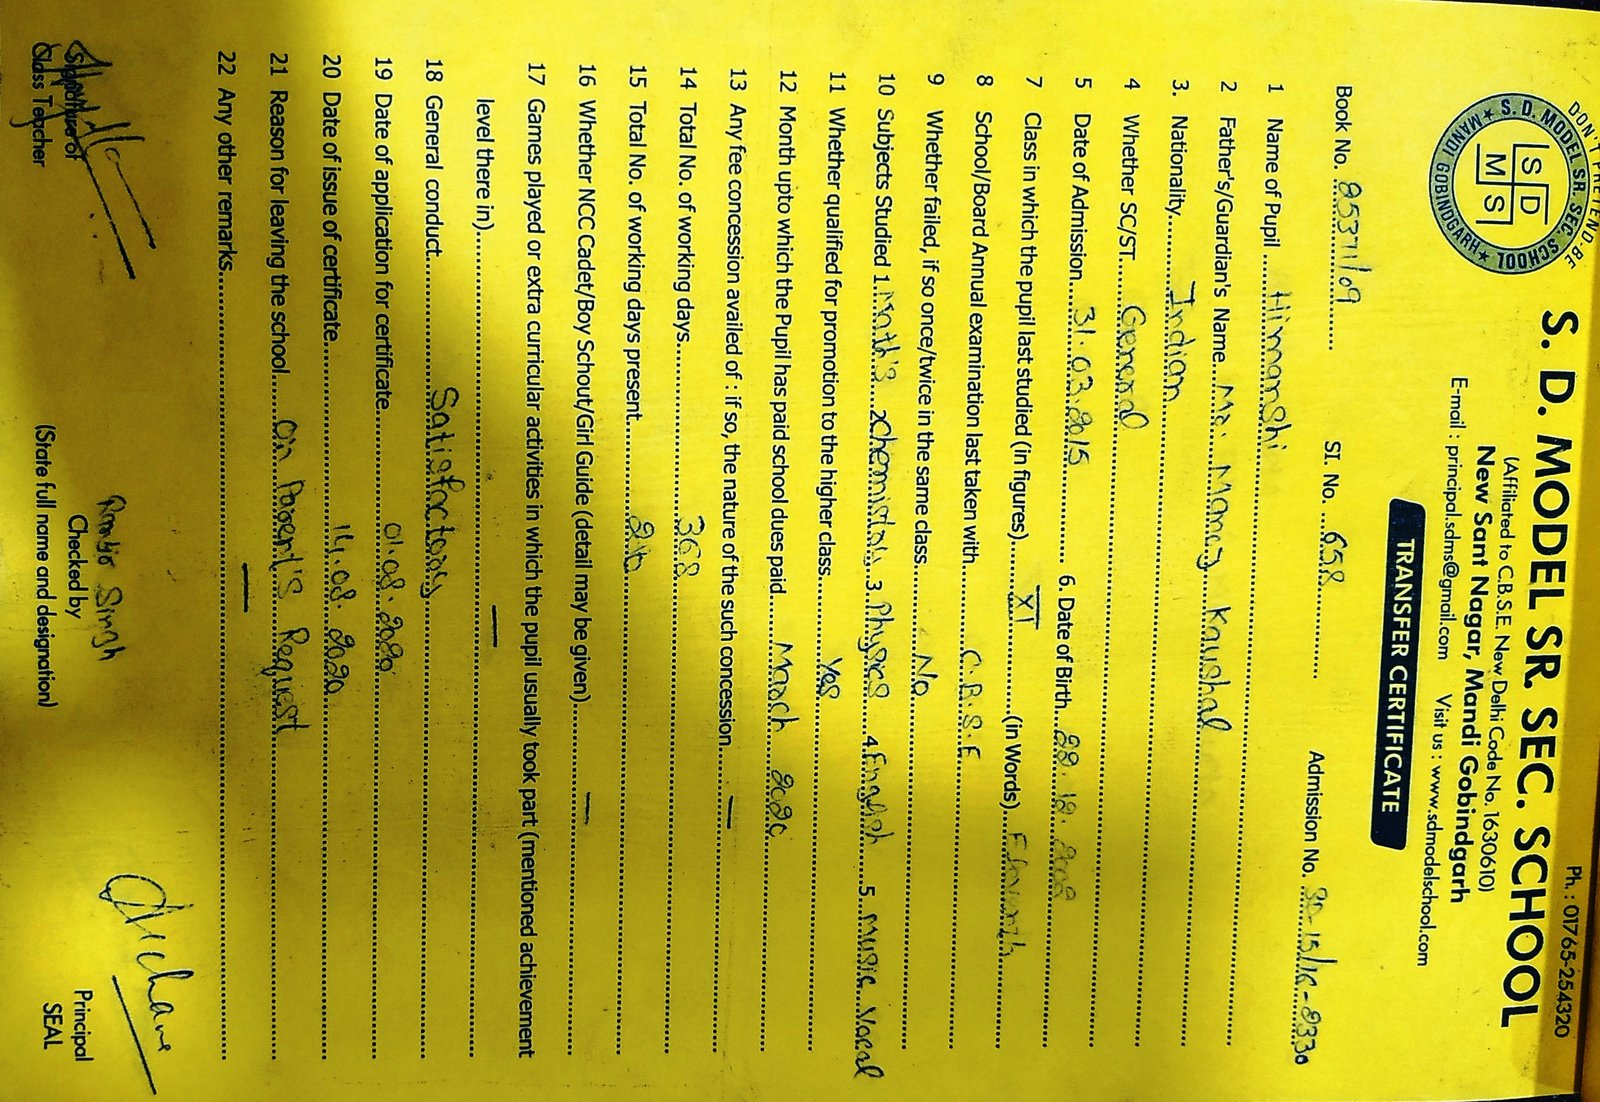 Ph.: 01765-254320
DON'T PRETEND-BE
S. D. MODEL SR. SEC. SCHOOL
MANDI GOBINDGARH
S D
M S
S. D. MODEL SR. SEC. SCHOOL
(Affiliated to C.B.S.E. New Delhi Code No. 1630610)
New Sant Nagar, Mandi Gobindgarh
E-mail : principal.sdms@gmail.com Visit us : www.sdmodelschool.com
TRANSFER CERTIFICATE
Book No. Sl. No. 658 Admission No.
1 Name of Pupil Himanshi
2 Father's/Guardian's Name Mr. Manoj Kaushal
3. Nationality Indian
4 Whether SC/ST General
5 Date of Admission 31.03.2015 6. Date of Birth
7 Class in which the pupil last studied (in figures) XI (in Words) Eleventh
8 School/Board Annual examination last taken with C.B.S.E
9 Whether failed, if so once/twice in the same class No
10 Subjects Studied 1. Math's 2 chemistry 3 Physics 4 English 5. Music Vocal
11 Whether qualified for promotion to the higher class Yes
12 Month upto which the Pupil has paid school dues paid March 2020
13 Any fee concession availed of : if so, the nature of the such concession —
14 Total No. of working days
15 Total No. of working days present
16 Whether NCC Cadet/Boy Schout/Girl Guide (detail may be given) —
17 Games played or extra curricular activities in which the pupil usually took part (mentioned achievement
level there in) —
18 General conduct Satisfactory
19 Date of application for certificate 01.08.2020
20 Date of issue of certificate 14.08.2020
21 Reason for leaving the school On Parent's Request
22 Any other remarks —
Signature of
Class Teacher
Singh
Checked by
(State full name and designation)
Principal
SEAL